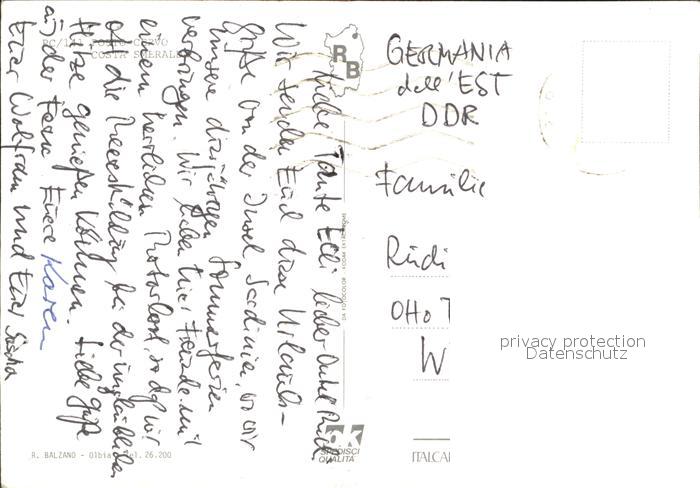 PC/141 PORTO CERVO
COSTA SMERALDA
RB
Liebe Tante Elli, lieber Onkel Rudi
Wir senden Euch diese Urlaubs-
grüße von der Insel Sardinien, wo wir
unsere diesjährigen Sommerferien
verbringen. Wir haben hier Freunde mit
einem herrlichen Motorboot, so daß wir
oft die Meereskühlung bei der unglaublichen
Hitze genießen können. Liebe Grüße
aus der Ferne Eure Karen
Euer Wolfram und Euer Sascha
GERMANIA
dell'EST
DDR
Familie
Rudi
Otto T
W
privacy protection
Datenschutz
DA FOTOCOLOR - KODAK EKTACHROME
R. BALZANO - Olbia - Tel. 26.200
ok
SPEDISCI
QUALITÀ
ITALCA